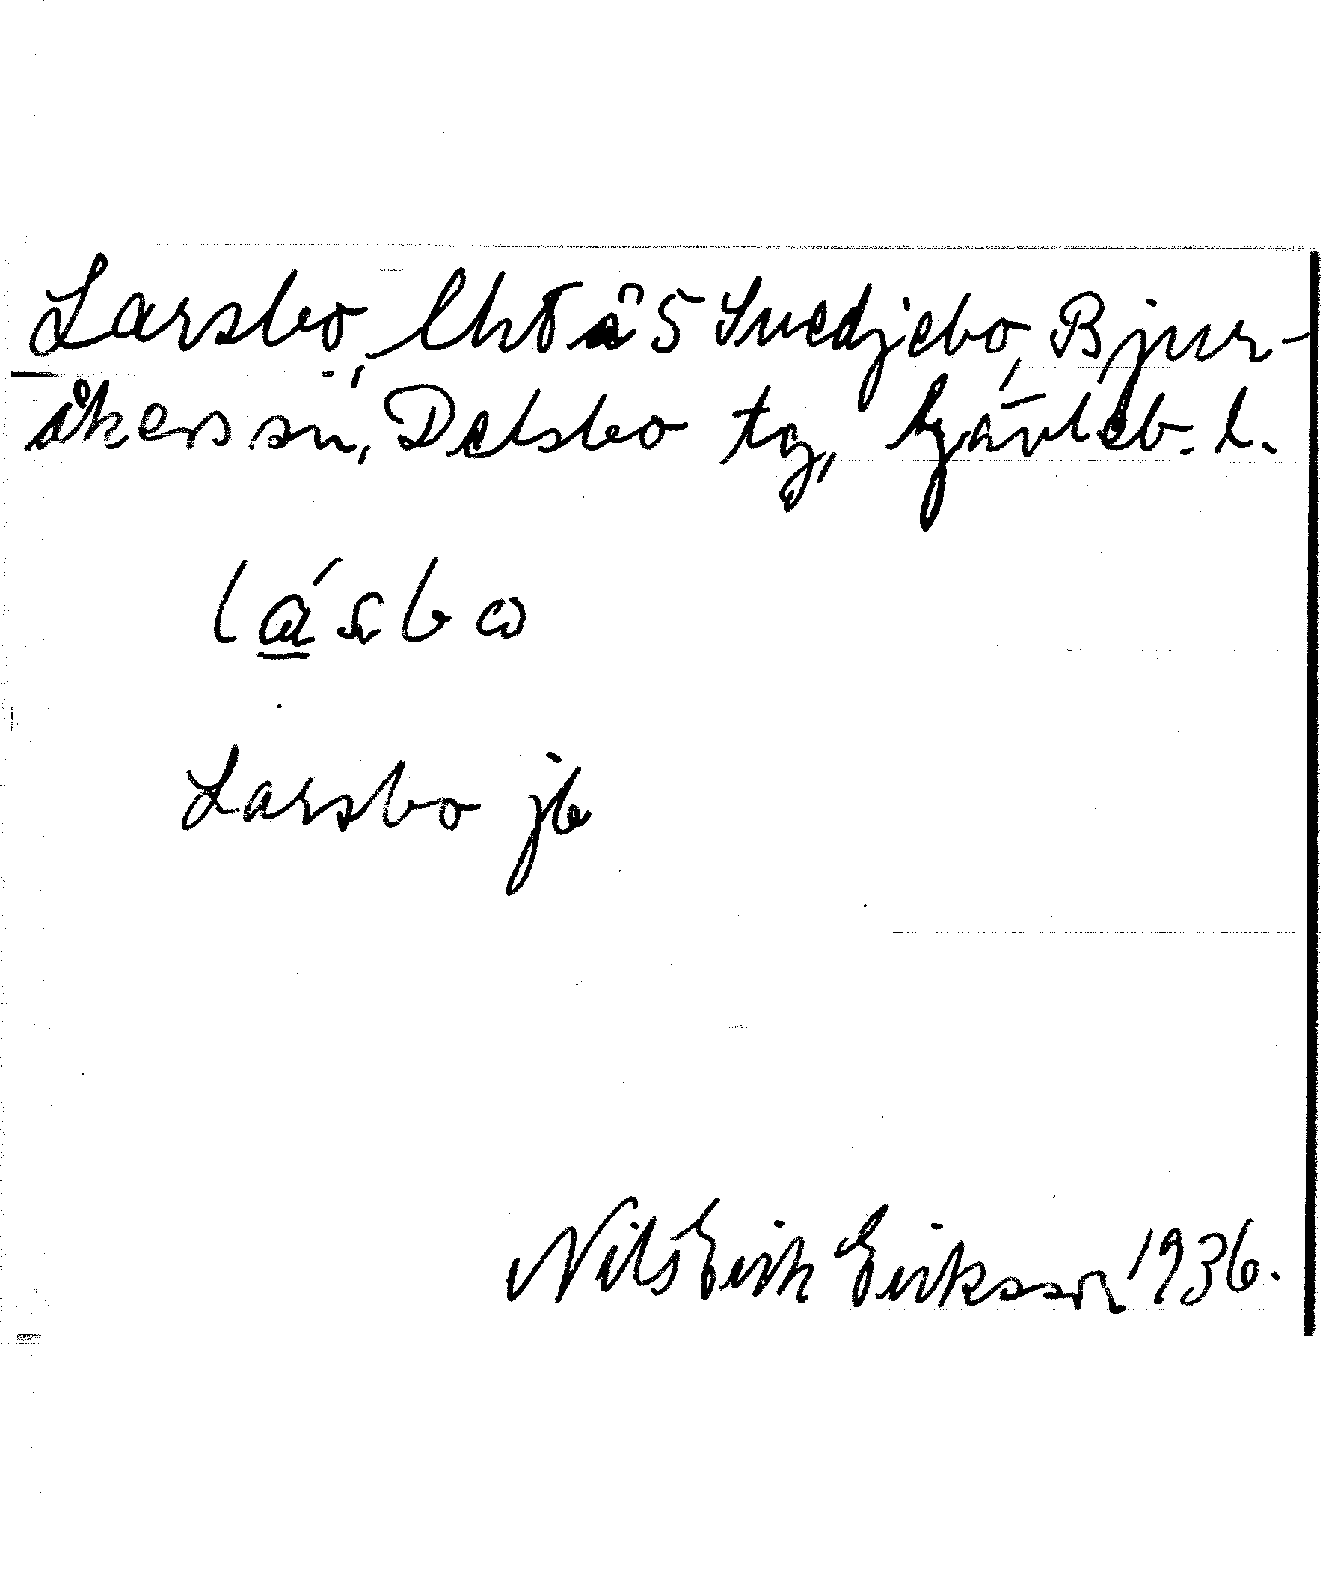 Larsbo, lht å 5 Svedjebo, Bjur-
åkers sn, Delsbo tg, Gävleb. l.
lásbω
Larsbo jb
Nils Erik Eriksson 1936.